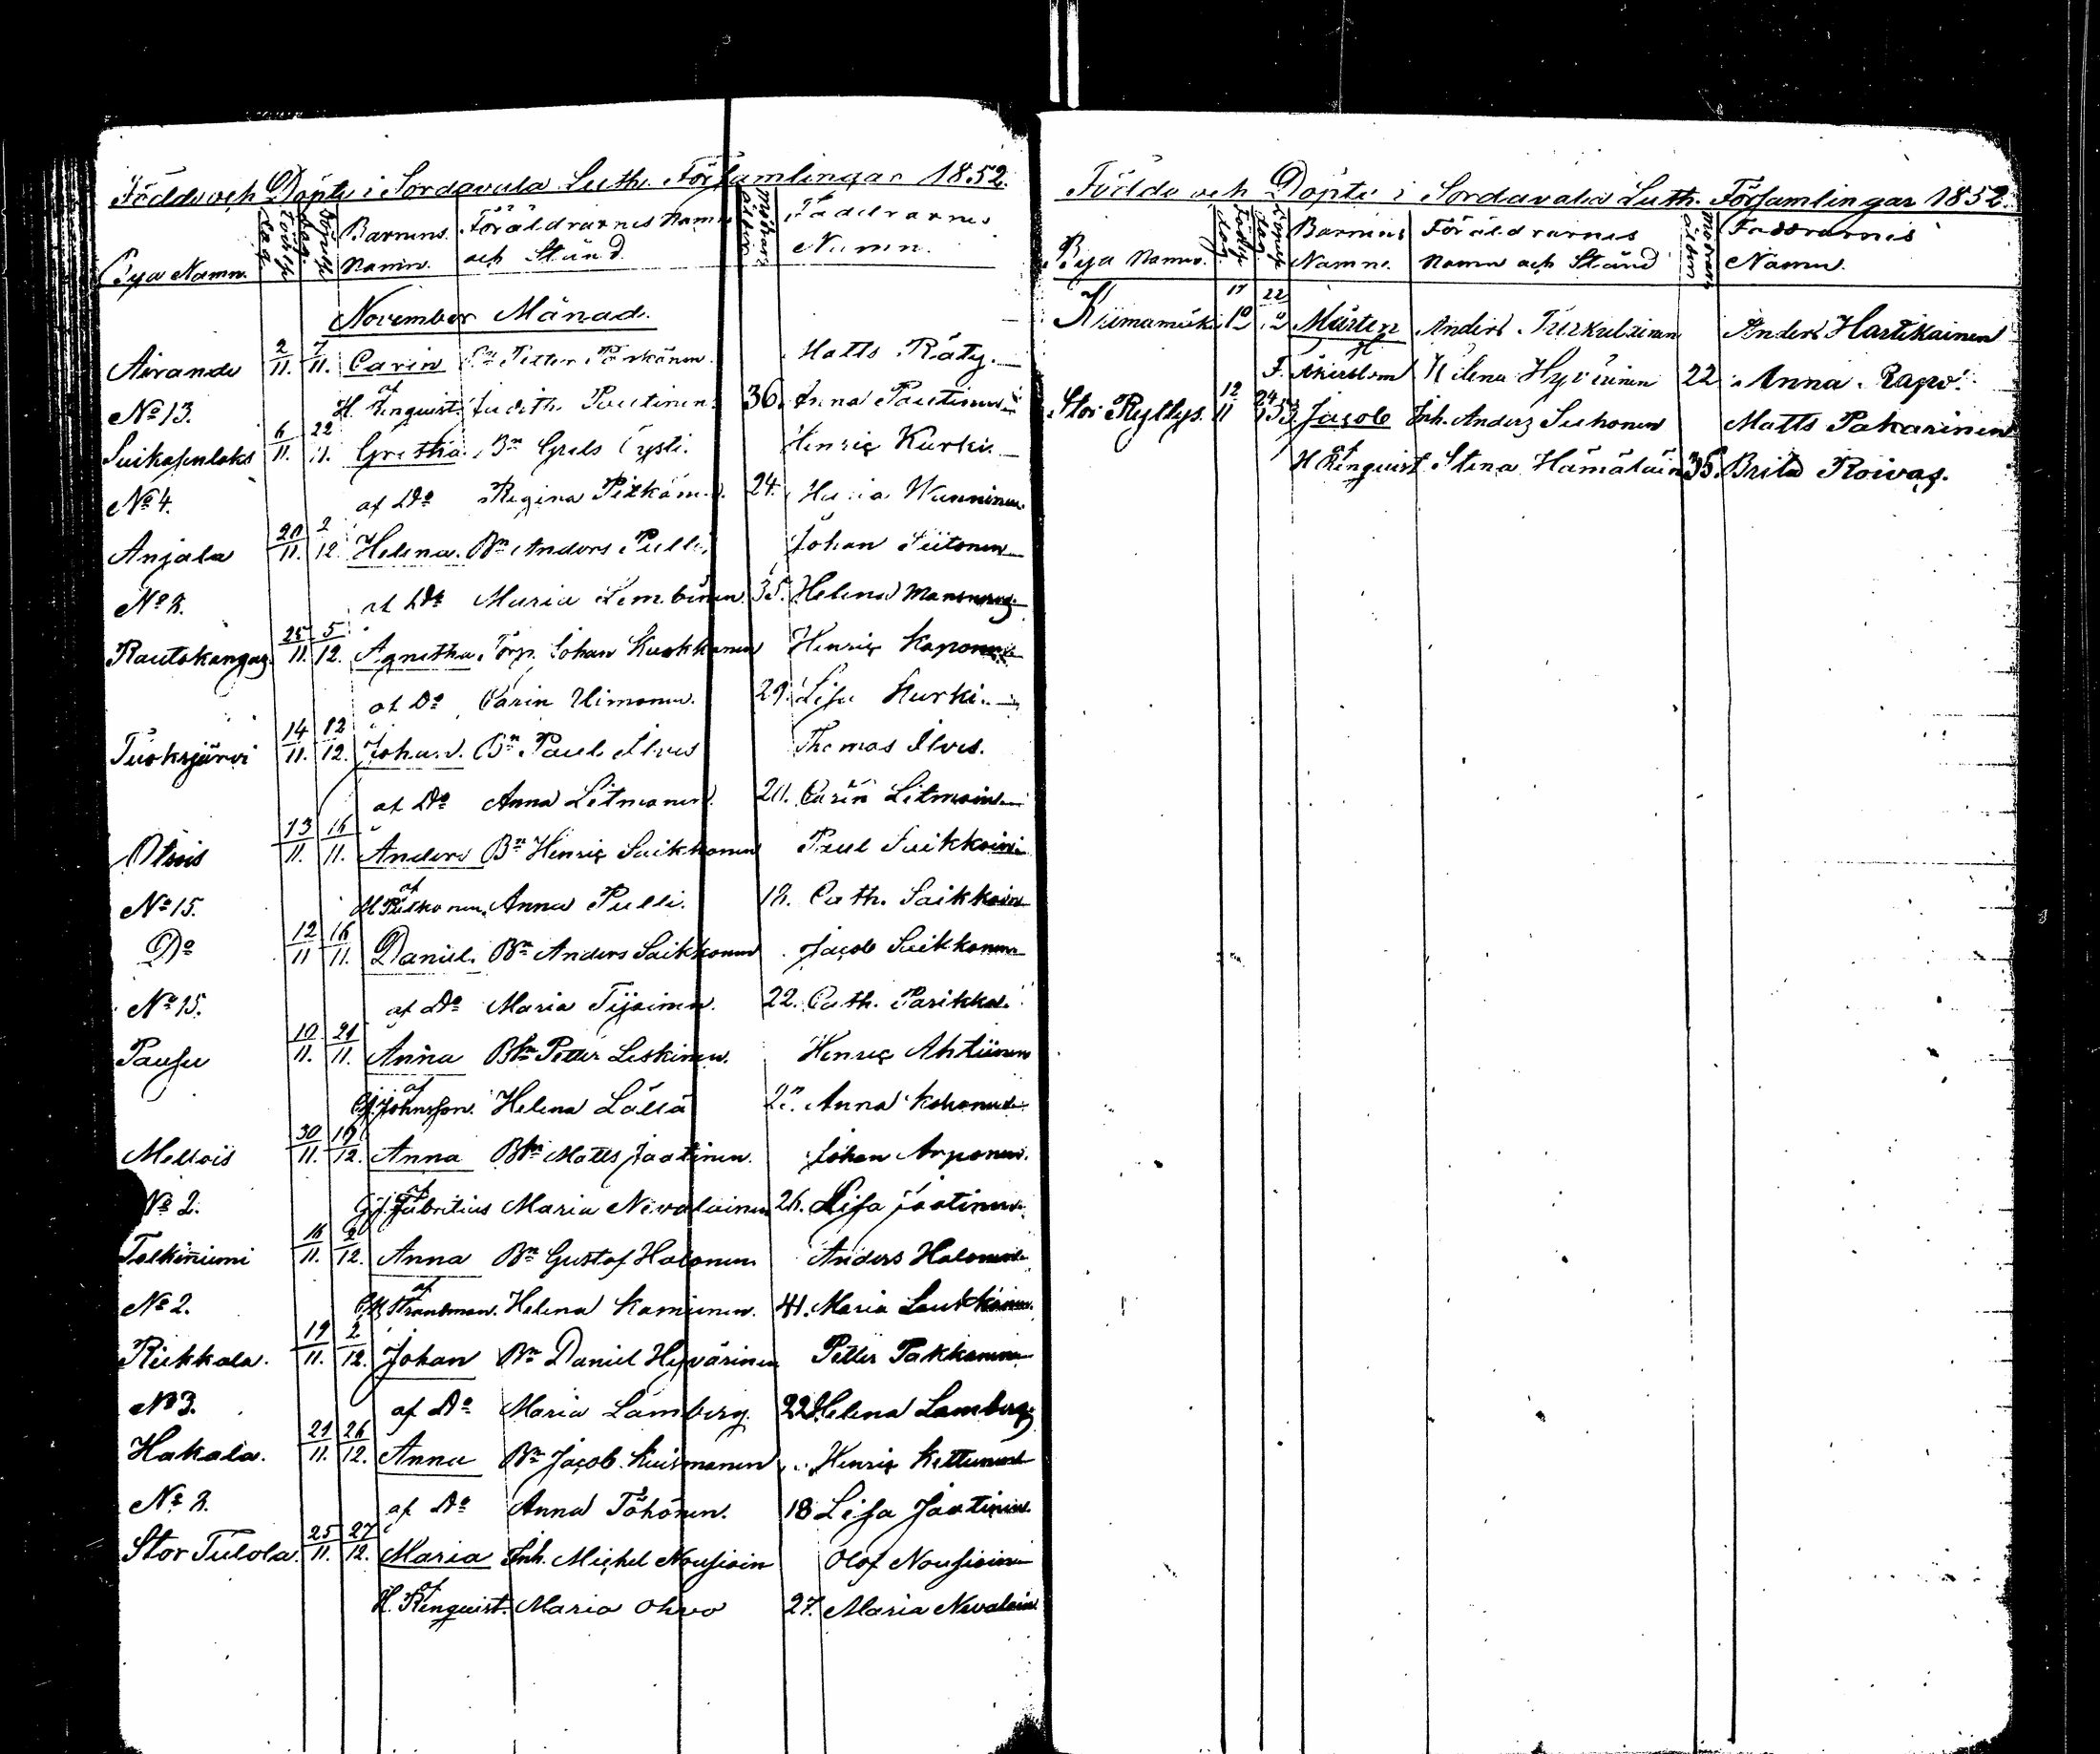 Födde och Döpte i Sordavala Luth. Församlingar 1852.
Bya Namn. Födelse dag. Döpelse dag. Barnens Namn. Föräldrarnes Namn och Stånd. Modrens ålder. Faddrarnes Namn.
November Månad.
Airande 2/11. 7/11. Carin Bn Petter Matts Räty.
No 13. af H. Renquist. Judith Pautinen. 36. Anna Pautinen
6/11. 22/11. Gretha. Bn Grels Henriç Kurki.
No 4. af Do Regina 24. Maria Wänninen.
Anjala 20/11. 2/12. Helena. Bn Anders Pulli. Johan Siitonen
No 2. af Do Maria 35. Helena
Rautakangas. 25/11. 5/12. Agnetha. Torp. Johan Kuokkanen Henriç Kaponen
af Do Carin Uimonen. 29. Lisa Kurki.
Tuoksjärvi 14/11. 12/12. Johan. Bn Paul Ilves Thomas Ilves.
af Do Anna Litmanen. 20. Carin Litmain
Otsois 13/11. 16/11. Anders Bn Henriç Saikkonen Paul Saikkoin
No 15. af M. Putkonen. Anna Pulli. Cath. Saikkoin
Do 12/11 16/11. Daniel. Bn Anders Saikkonen Jacob Saikkonen
No 15. af Do Maria 22. Cath. Parikka.
Pausu 10/11. 21/11. Anna Bn Petter Leskinen. Henriç Ahtiinen
af Johnsson. Helena Lällä Anna Kohonen
Mellois 30/11. 19/12. Anna Bn Matts Jaatinen. Johan Arponen.
No 2. af G. J. Fabritius Maria Nevalainen 26. Lisa Jaatinen.
Tolkiniemi 16/11. 2/12. Anna Bn Gustof Halonen Anders Halonen
No 2. af C. M. Strandman. Helena Kamunen. 41. Maria Laukkanen.
Riekkala. 19/11. 2/12. Johan Bn Daniel Hyvärinen Petter Pakkanen
No 3. af Do Maria Lamberg. 22. Helena Lamberg
Hakala. 21/11. 26/12. Anna Bn Jacob Kuismanen Henriç Kettunen
No 2. af Do Anna Töhönen. 18 Lisa Jaatinen
Stor Tulola. 25/11. 27/12. Maria Inh. Michel Nousioin Olof Nousioin
af H. Renquist. Maria Ohvo 27. Maria Nevalain
Födde och Döpte i Sordavala Luth. Församlingar 1852.
Bya Namn. Födelse dag. Döpelse dag. Barnens Namn. Föräldrarnes Namn och Stånd Modrens ålder Faddrarnes Namn.
Kiimamäki 17/10 22/10 Mårten Anders Turkulainen Anders Hartikainen
af F. Åkerblom Helena Hyvärinen 22. Anna Rapo.
Stor Ryttys. 12/11 24/ 53. Jacob Inh. Anders Suhonen Matts Pakarinen
af H Renquist Stina Hämäläin 35. Brita Roivas.